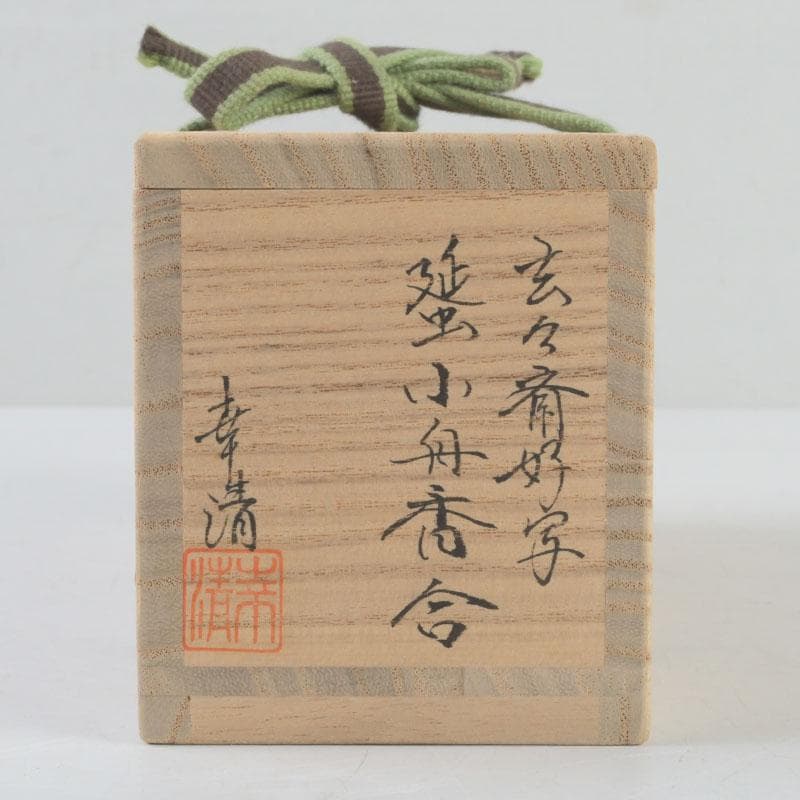 玄々斎好写
蜑小舟香合
幸清
幸清